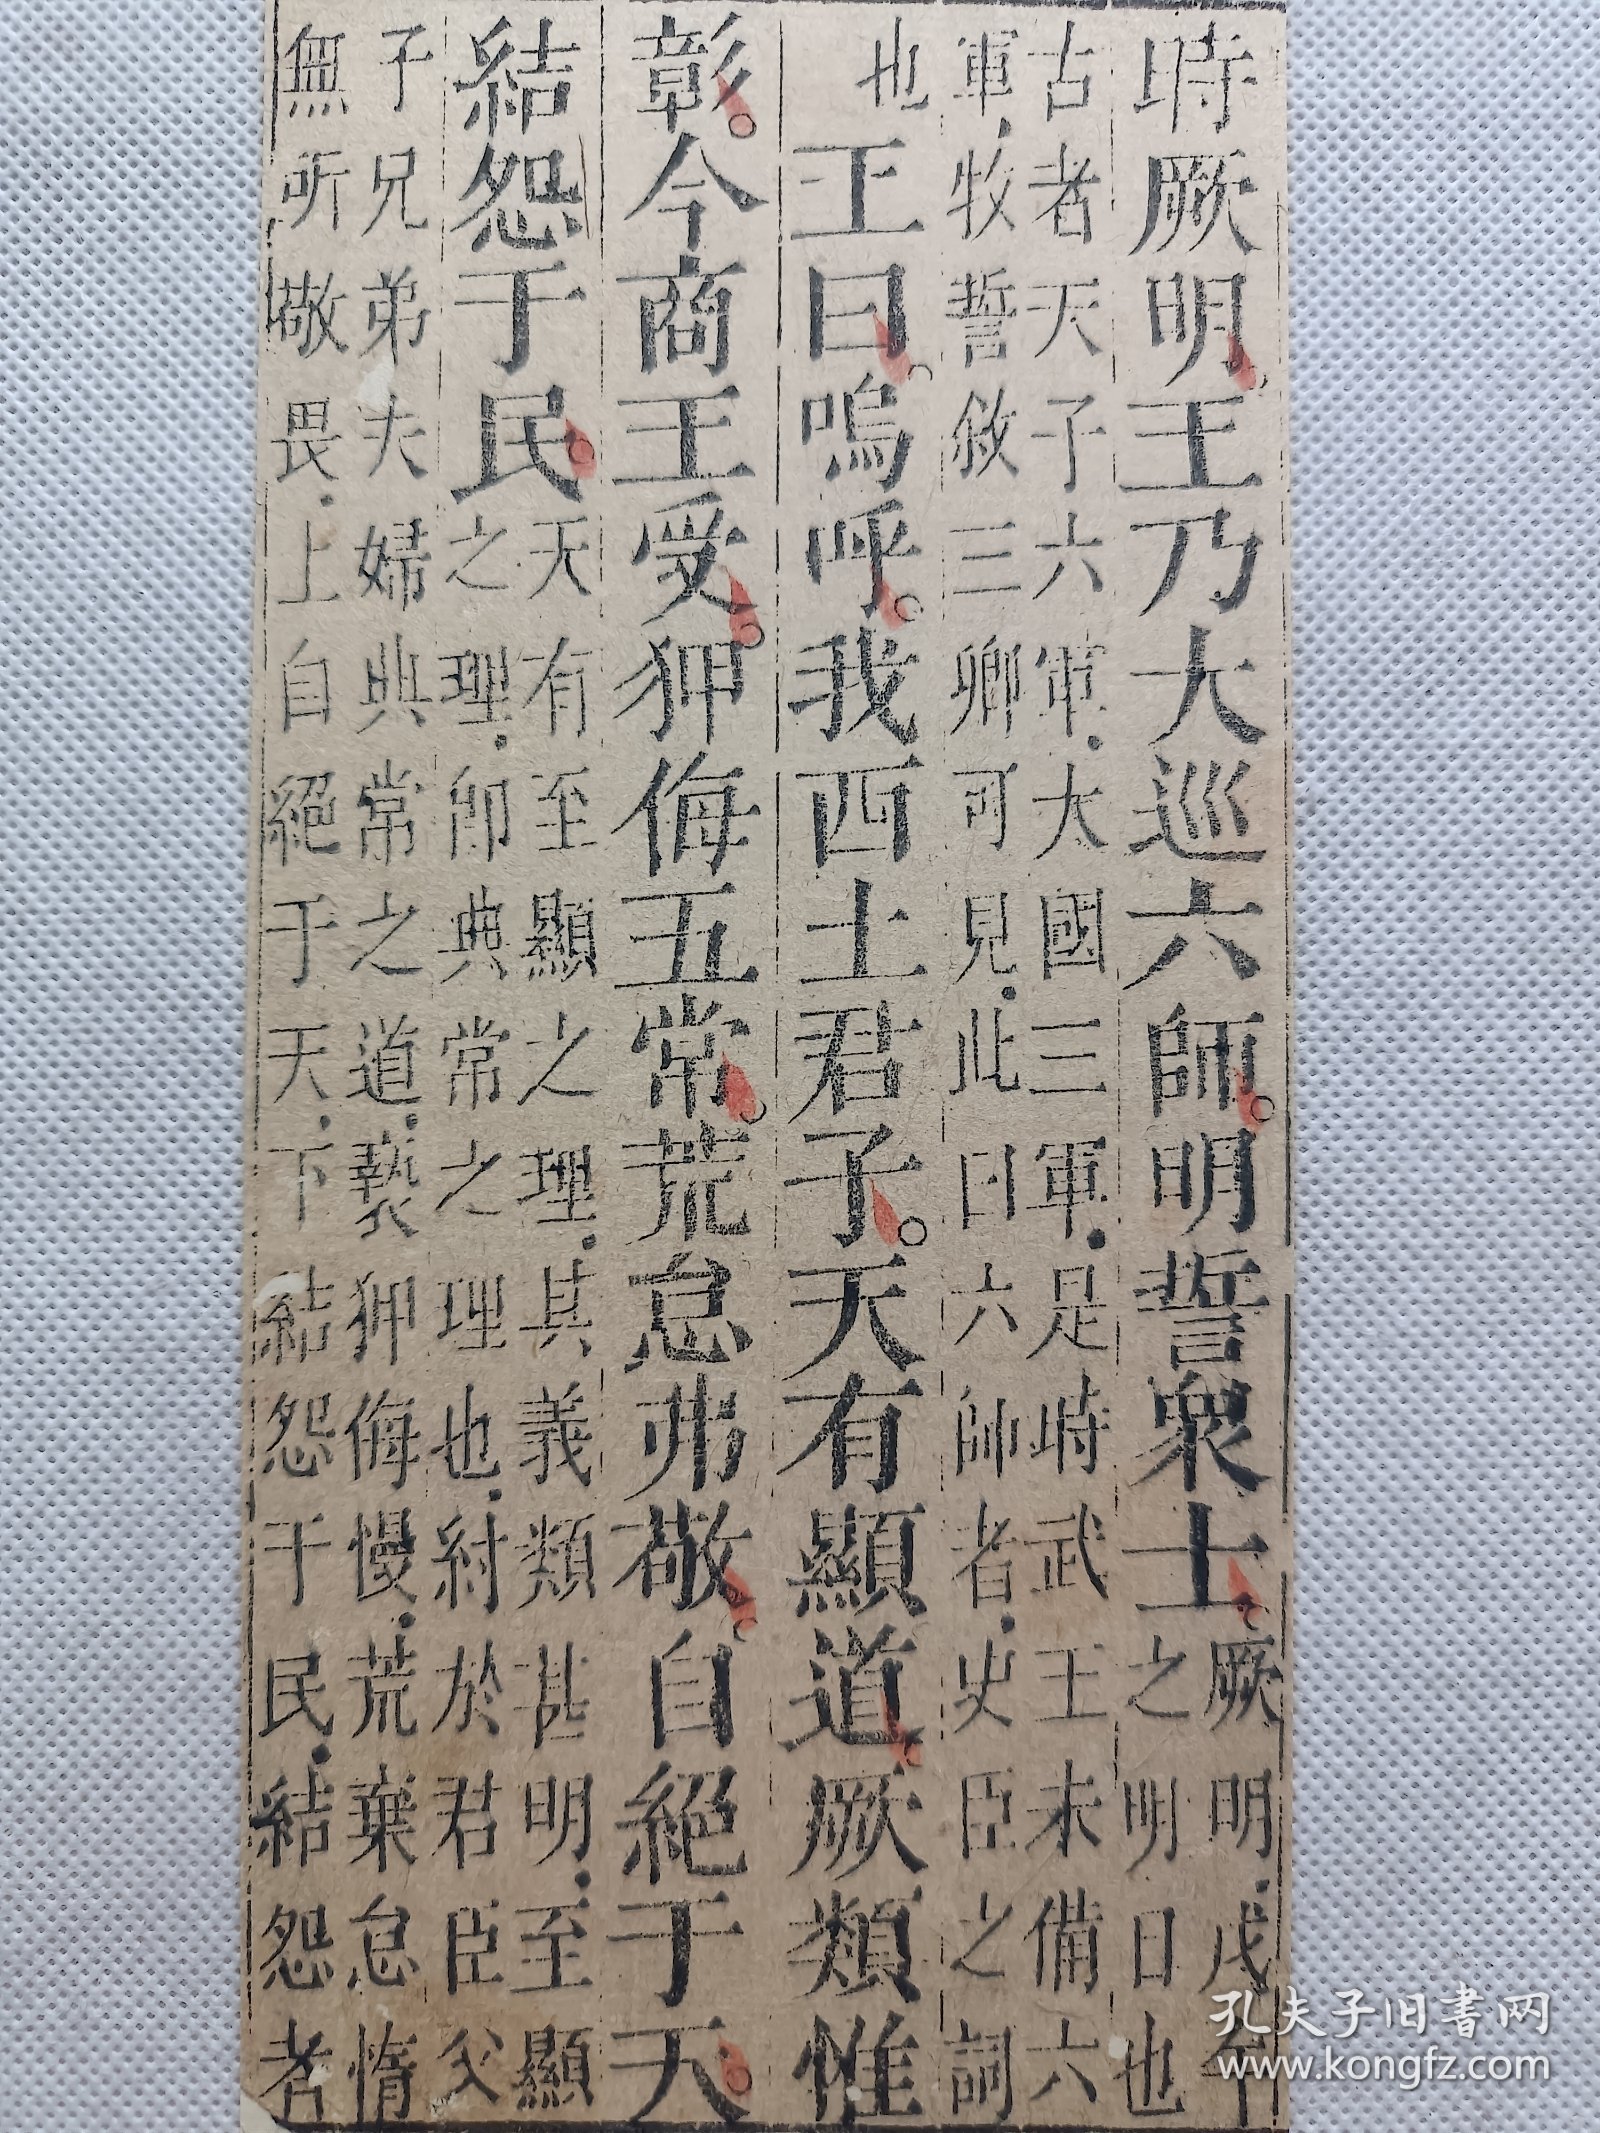 時厥明。王乃大巡六師。明誓衆士。厥明戊午
之明日也
古者天子六軍．大國三軍．是時武王未備六
軍．牧誓敘三卿可見．此曰六師者．史臣之詞
也
王曰。嗚呼。我西土君子。天有顯道。厥類惟
彰。今商王受。狎侮五常。荒怠弗敬。自絕于天。
結怨于民。天有至顯之理．其義類甚明．至顯
之理．卽典常之理也．紂於君臣父
子兄弟夫婦典常之道．褻狎侮慢．荒棄怠惰
無所敬畏．上自絕于天．下結怨于民．結怨者
孔夫子旧书网
www.kongfz.com